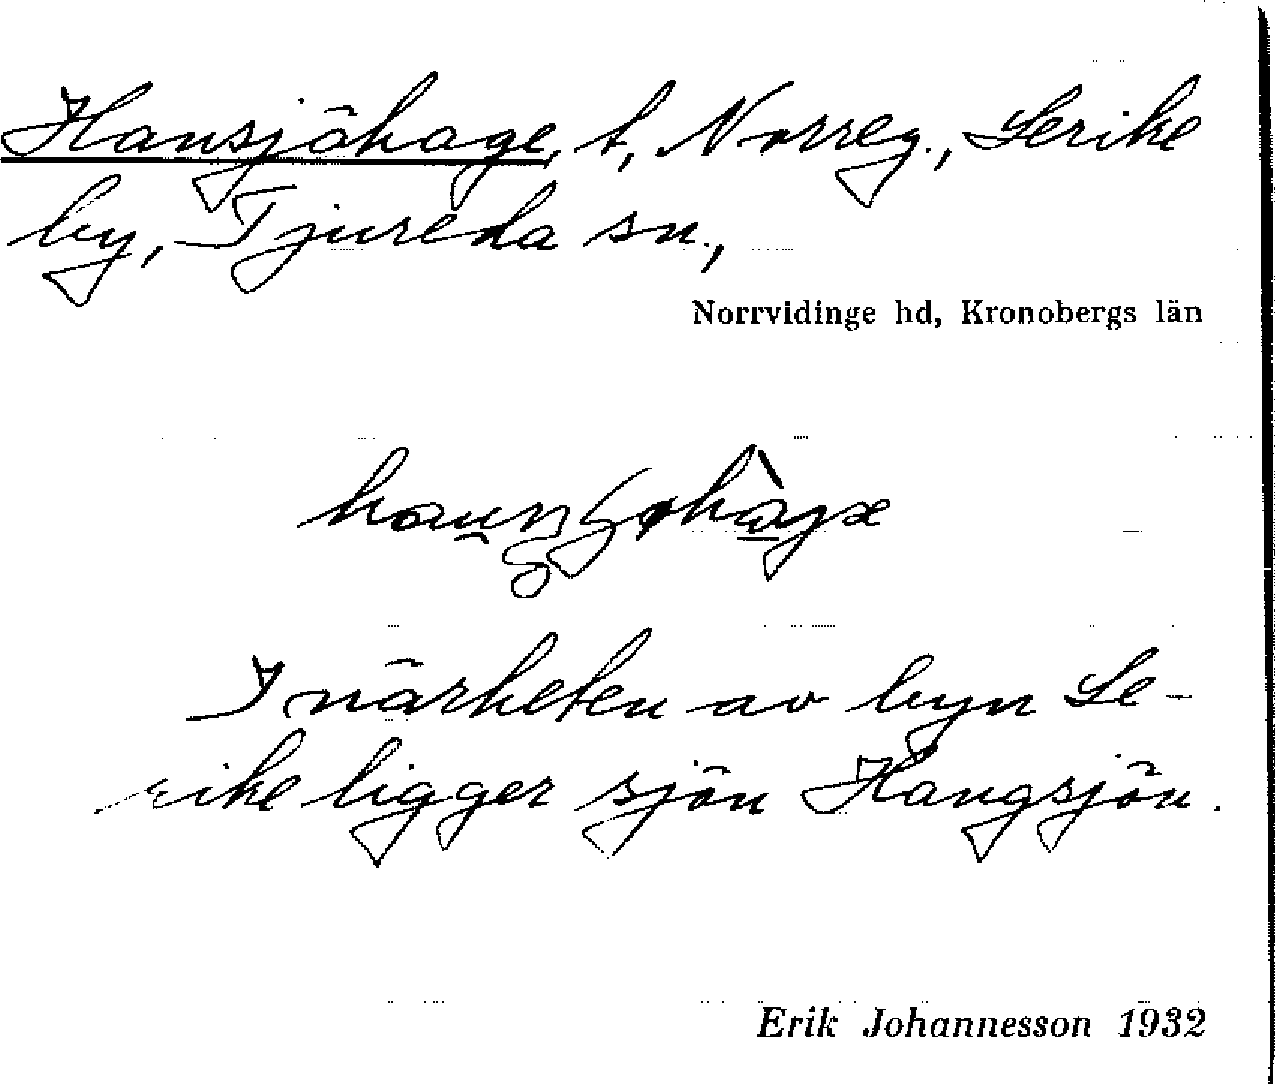 Hansjöhage, t, Norreg., Lerike
by, Tjureda sn.,
Norrvidinge hd, Kronobergs län
I närheten av byn Le-
rike ligger sjön Hangsjön.
Erik Johannesson 1932